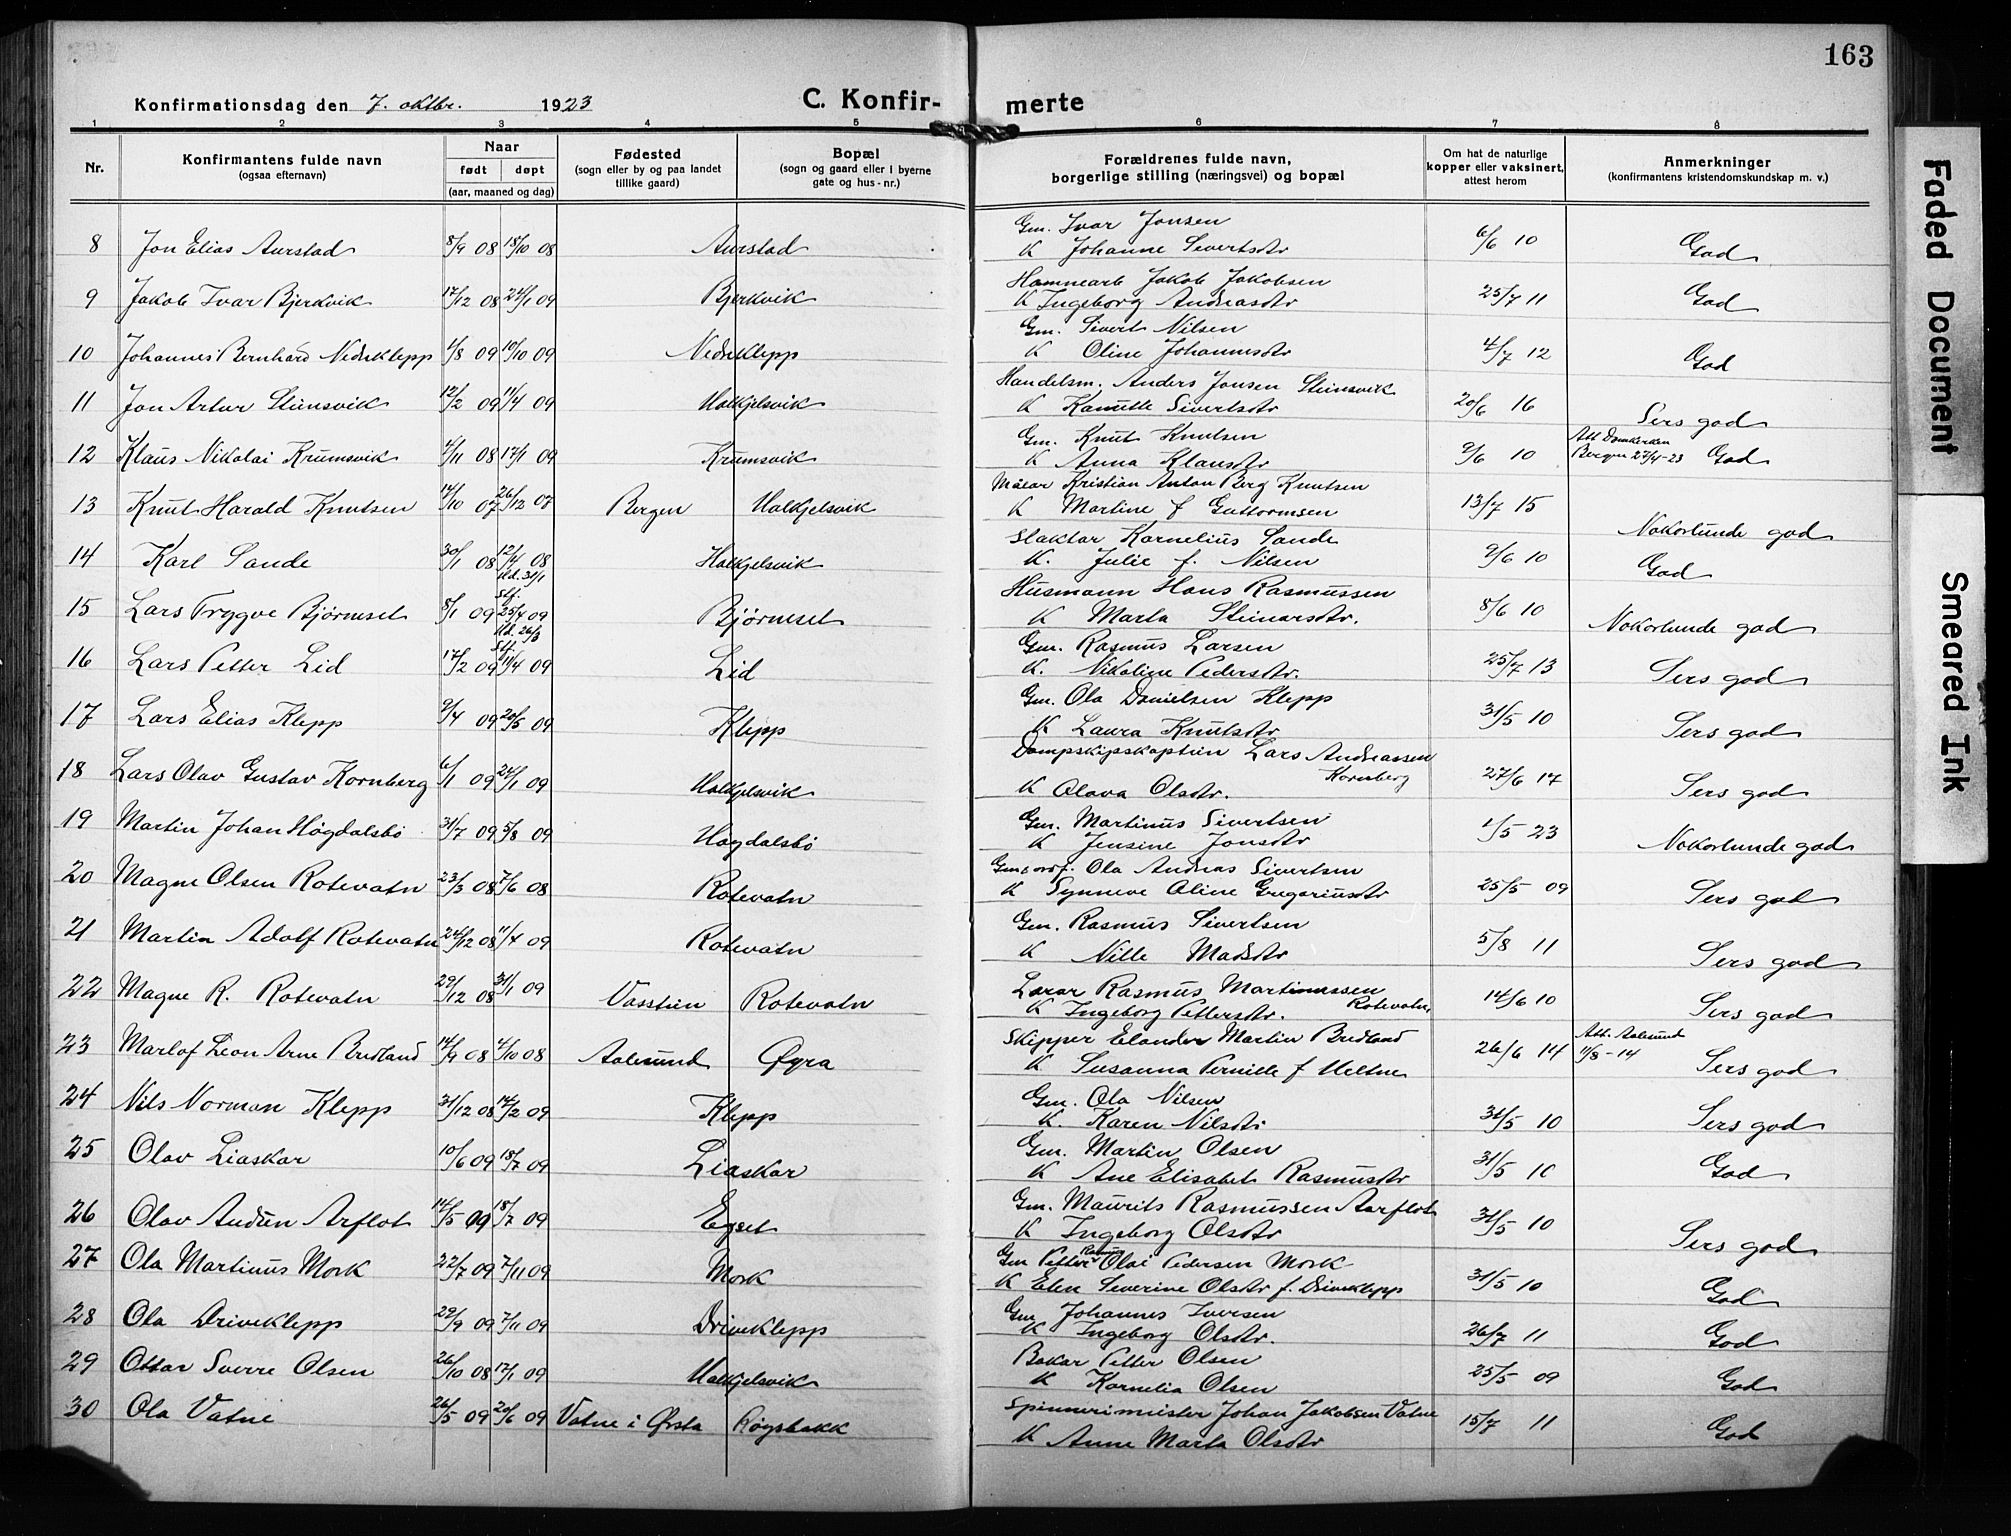 163
Konfirmationsdag den 7. oktbr. 1923 C. Konfir- merte
1 2 3 4 5 6 7 8
Nr. Konfirmantens fulde navn (ogsaa efternavn) Naar født døpt (aar, maaned og dag) Fødested (sogn eller by og paa landet tillike gaard) Bopæl (sogn og gaard eller i byerne gate og hus-nr.) Forældrenes fulde navn, borgerlige stilling (næringsvei) og bopæl Om hat de naturlige kopper eller vaksinert, attest herom Anmerkninger (konfirmantens kristendomskundskap m. v.)
8 Jon Elias Aurstad 8/9 08 18/10 08 Aurstad Gm. Ivar Jonsen
K Johanne Sivertsdtr 6/6 10 God
9 Jakob Ivar Bjerkvik 17/12 08 24/1 09 Bjerkvik Hamnearb Jakob Jakobsen
K Ingeborg Andreasdtr 25/7 11 God
10 Johannes Bernhard Nedreklepp 1/8 09 10/10 09 Nedreklepp Gm. Sivert Nilsen
K Oline Johannesdtr 4/7 12 God
11 Jon Artur Steinsvik 12/2 09 11/4 09 Halkjelsvik Handelsm. Anders Jonsen Steinsvik
K Kanutte Sivertsdtr 20/6 16 Sers god
12 Klaus Nikolai Krumsvik 4/11 08 17/1 09 Krumsvik Gm. Knut Knutsen
K Anna Klausdtr 9/6 10 Att Domkirken Bergen 27/4-23 God
13 Knut Harald Knutsen 14/10 07 26/12 07 Bergen Halkjelsvik Målar Kristian Anton Berg Knutsen
K Martine f Guttormsen 13/7 15 Nokorlunde god
14 Karl Sande 30/1 08 12/4 08 Halkjelsvik Slaktar Kornelius Sande
K. Julie f. Nilsen 9/6 10 God
15 Lars Trygve Bjørneset 8/1 09 Hd. 31/1 Stf. 25/4 09 Bjørneset Husmann Hans Rasmussen
K Marta Steinarsdtr. 8/6 10 Nokorlunde god
16 Lars Petter Lid 17/2 09 Hd. 26/3 Stf. 11/4 09 Lid Gm. Rasmus Larsen
K. Nikoline Pedersdtr. 25/7 13 Sers god
17 Lars Elias Klepp 9/4 09 20/5 09 Klepp Gm. Ola Danielsen Klepp
K Laura Knutsdtr 31/5 10 Sers god
18 Lars Olav Gustav Kornberg 6/1 09 24/1 09 Halkjelsvik Dampskipskaptein Lars Andreassen Kornberg
K Olava Olsdtr. 27/6 17 Sers god
19 Martin Johan Høgdalsbø 31/7 09 5/8 09 Høgdalsbø Gm. Martinus Sivertsen
K Jensine Jonsdtr 1/5 23 Nokorlunde god
20 Magne Olsen Rotevatn 23/3 08 7/6 08 Rotevatn Gm. o ordf. Ola Andreas Sivertsen
K Synneve Oline Gregoriusdtr 25/5 09 Sers god
21 Martin Adolf Rotevatn 24/12 08 11/4 09 Rotevatn Gm. Rasmus Sivertsen
K Nille Madsdtr 5/8 11 Sers god
22 Magne R. Rotevatn 29/12 08 31/1 09 Vasstun Rotevatn Lærar Rasmus Martinussen Rotevatn
K Ingeborg Pettersdtr. 14/6 10 Sers god
23 Marlof Leon Arne Bredland 14/9 08 4/10 08 Aalesund Øyra Skipper Elander Martin Bredland
K Susanna Pernille f Heltne 26/6 14 Att. Aalesund 11/8-14 Sers god
24 Nils Norman Klepp 31/12 08 14/2 09 Klepp Gm. Ola Nilsen
K. Karen Nilsdtr 31/5 10 Sers god
25 Olav Liaskar 10/6 09 18/7 09 Liaskar Gm. Martin Olsen
K Ane Elisabet Rasmusdtr 31/5 10 God
26 Olav Audun Arflot 14/5 09 18/7 09 Egset Gm. Maurits Rasmussen Aarflot
K Ingeborg Olsdtr 31/5 10 Sers god
27 Ola Martinus Mork 22/7 09 7/11 09 Mork Gm Petter Rasmus Olai Pedersen Mork
K Elen Severine Olsdtr f. Driveklepp 31/5 10 God
28 Ola Driveklepp 29/9 09 7/11 09 Driveklepp Gm Johannes Iversen
K Ingeborg Olsdtr. 26/7 11 God
29 Ottar Sverre Olsen 26/10 08 17/1 09 Halkjelsvik Bakar Petter Olsen
K Kornelia Olsen 25/5 09 God
30 Ola Vatne 26/5 09 20/6 09 Vatne i Ørsta Røysbakk Spinnerimeister Johan Jakobsen Vatne
K Anne Marta Olsdtr 15/7 11 God
Faded Document
Smeared Ink